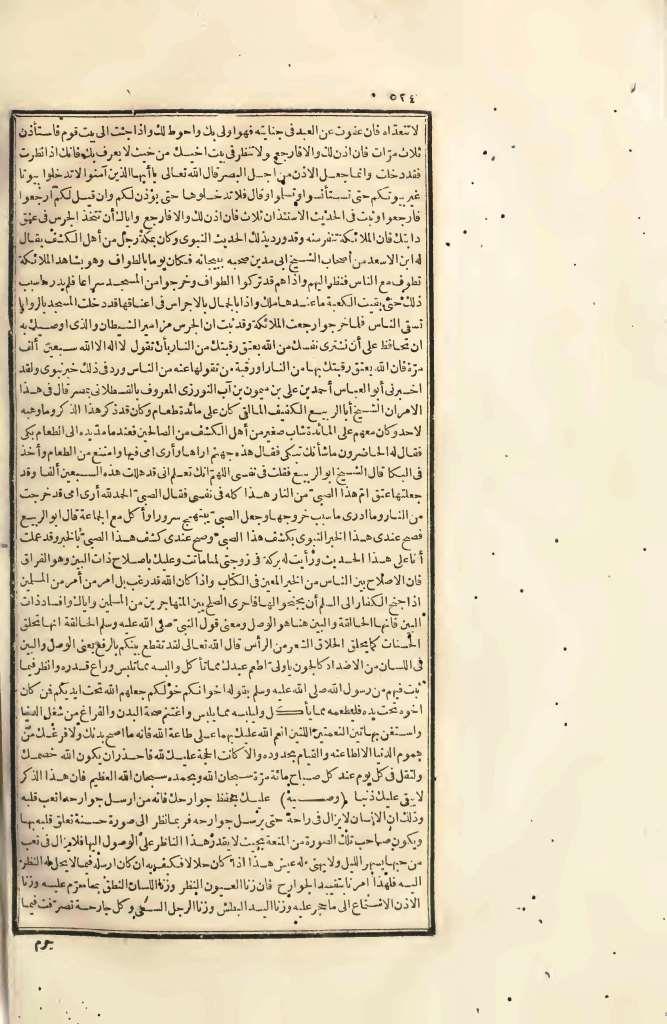 ٥٢٤
لا تتعداه فان عفوت عن العبد فى جنايته فهو اولى بك واحوط لك واذا جئت الى بيت قوم فاستأذن
ثلاث مرّات فان اذن لك والا فارجع ولا تنظر فى بيت اخيك من حيث لا يعرف بك فانك اذا نظرت
فقد دخلت وانما جعل الاذن من اجل البصر قال الله تعالى يا أيها الذين آمنوا لا تدخلوا بيوتا
غير بيوتكم حتى تستأنسوا وتسلموا وقال فلا تدخلوها حتى يؤذن لكم وان قيل لكم ارجعوا
فارجعوا وثبت فى الحديث الاستئذان ثلاث فان اذن لك والا فارجع واياك أن تتخذ الجرس فى عنق
دابتك فان الملائكة تنفر منه وقد ورد بذلك الحديث النبوى وكان بمكة رجل من أهل الكشف يقال
له ابن الاسعد من أصحاب الشيخ ابى مدين صحبه ببجاية فكان يوما بالطواف وهو يشاهد الملائكة
تطوف مع الناس فنظر اليهم واذا هم قد تركوا الطواف وخرجوا من المسجد سراعا فلم يدر ما سبب
ذلك حتى بقيت الكعبة ما عندها ملك واذا بالجمال بالاجراس فى اعناقها قد دخلت المسجد بالروايا
تسقى الناس فلما خرجوا رجعت الملائكة وقد ثبت ان الجرس من امير الشيطان والذى اوصيك به
ان تحافظ على أن تشترى نفسك من الله بعتق رقبتك من النار بأن تقول لا اله الا الله سبعين ألف
مرّة فان الله يعتق رقبتك بها من النار او رقبة من تقولها عنه من الناس ورد فى ذلك خبر نبوى ولقد
اخبرنى أبو العباس أحمد بن على بن ميمون بن آب التوزرى المعروف بالقسطلانى بمصر قال فى هذا
الامر ان الشيخ أبا الربيع الكفيف المالقى كان على مائدة طعام وكان قد ذكر هذا الذكر وما وهبه
لاحد وكان معهم على المائدة شاب صغير من أهل الكشف من الصالحين فعندما مدّ يده الى الطعام بكى
فقال له الحاضرون ما شأنك تبكى فقال هذه جهنم اراها وأرى امى فيها وامتنع من الطعام وأخذ
فى البكاء قال الشيخ ابو الربيع فقلت فى نفسى اللهم انك تعلم انى قد هللت هذه السبعين ألفا وقد
جعلتها عتق امّ هذا الصبىّ من النار هذا كله فى نفسى فقال الصبىّ الحمد لله أرى امى قد خرجت
من النار وما ادرى ما سبب خروجها وجعل الصبىّ يبتهج سرورا وأكل مع الجماعة قال ابو الربيع
فصح عندى هذا الخبر النبوى بكشف هذا الصبىّ وصح عندى كشف هذا الصبىّ بالخبر وقد عملت
أنا على هذا الحديث ورأيت له بركة فى زوجتى لما ماتت وعليك باصلاح ذات البين وهو الفراق
فان الاصلاح بين الناس من الخير المعين فى الكتاب واذا كان الله قد رغب بل امر من أمر من المسلمين
اذا جنح الكفار الى السلم أن يجنحوا اليها فاحرى الصلح بين المتهاجرين من المسلمين واياك وافساد ذات
البين فانها الحالقة والبين هنا هو الوصل ومعنى قول النبىّ صلى الله عليه وسلم الحالقة انها تحلق
الحسنات كما يحلق الحلاق الشعر من الرأس قال الله تعالى لقد تقطع بينكم بالرفع يعنى الوصل والبين
فى اللسان من الاضداد كالجون يا ولىّ اطعم عبدك مما تأكل والبسه مما تلبس وراع قدره وانظر فيما
ثبت فيهم من رسول الله صلى الله عليه وسلم بقوله اخوانكم خولكم جعلهم الله تحت ايديكم فمن كان
اخوه تحت يده فليطعمه مما يأكل وليلبسه مما يلبس واغتنم صحة البدن والفراغ من شغل الدنيا
واستعن بهاتين النعمتين اللتين انعم الله عليك بهما على طاعة الله فانه ما اصح بدنك ولا فرغك من
هموم الدنيا الا لطاعته والقيام بحدوده والا كانت الحجة عليك لله فاحذر ان يكون الله خصمك
ولتقل فى كل يوم عند كل صباح مائة مرّة سبحان الله وبحمده سبحان الله العظيم فان هذا الذكر
لا يبقى عليك ذنبا (وصية) عليك بحفظ جوارحك فانه من ارسل جوارحه اتعب قلبه
وذلك ان الانسان لا يزال فى راحة حتى يرسل جوارحه فربما نظر الى صورة حسنة تعلق قلبه بها
ويكون صاحب تلك الصورة من المنعة بحيث لا يقدر هذا الناظر على الوصول اليها فلا يزال فى تعب
من حبها يسهر الليل ولا يهنى له عيش هذا اذا كان حلالا فكيف به ان كان ارسله فيما لا يحل له النظر
اليه فلهذا امرنا بتقييد الجوارح فان زنا العيون النظر وزنا اللسان النطق بما حرم عليه وزنا
الاذن الاستماع الى ما حجر عليه وزنا اليد البطش وزنا الرجل السعى وكل جارحة تصرفت فيما